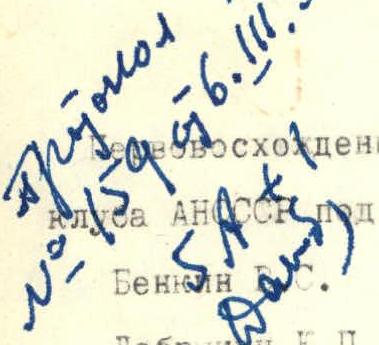 Протокол
№ 159 от 6.III.
5А
Первовосхожден
клуба АН СССР под
Бенкин В.С.